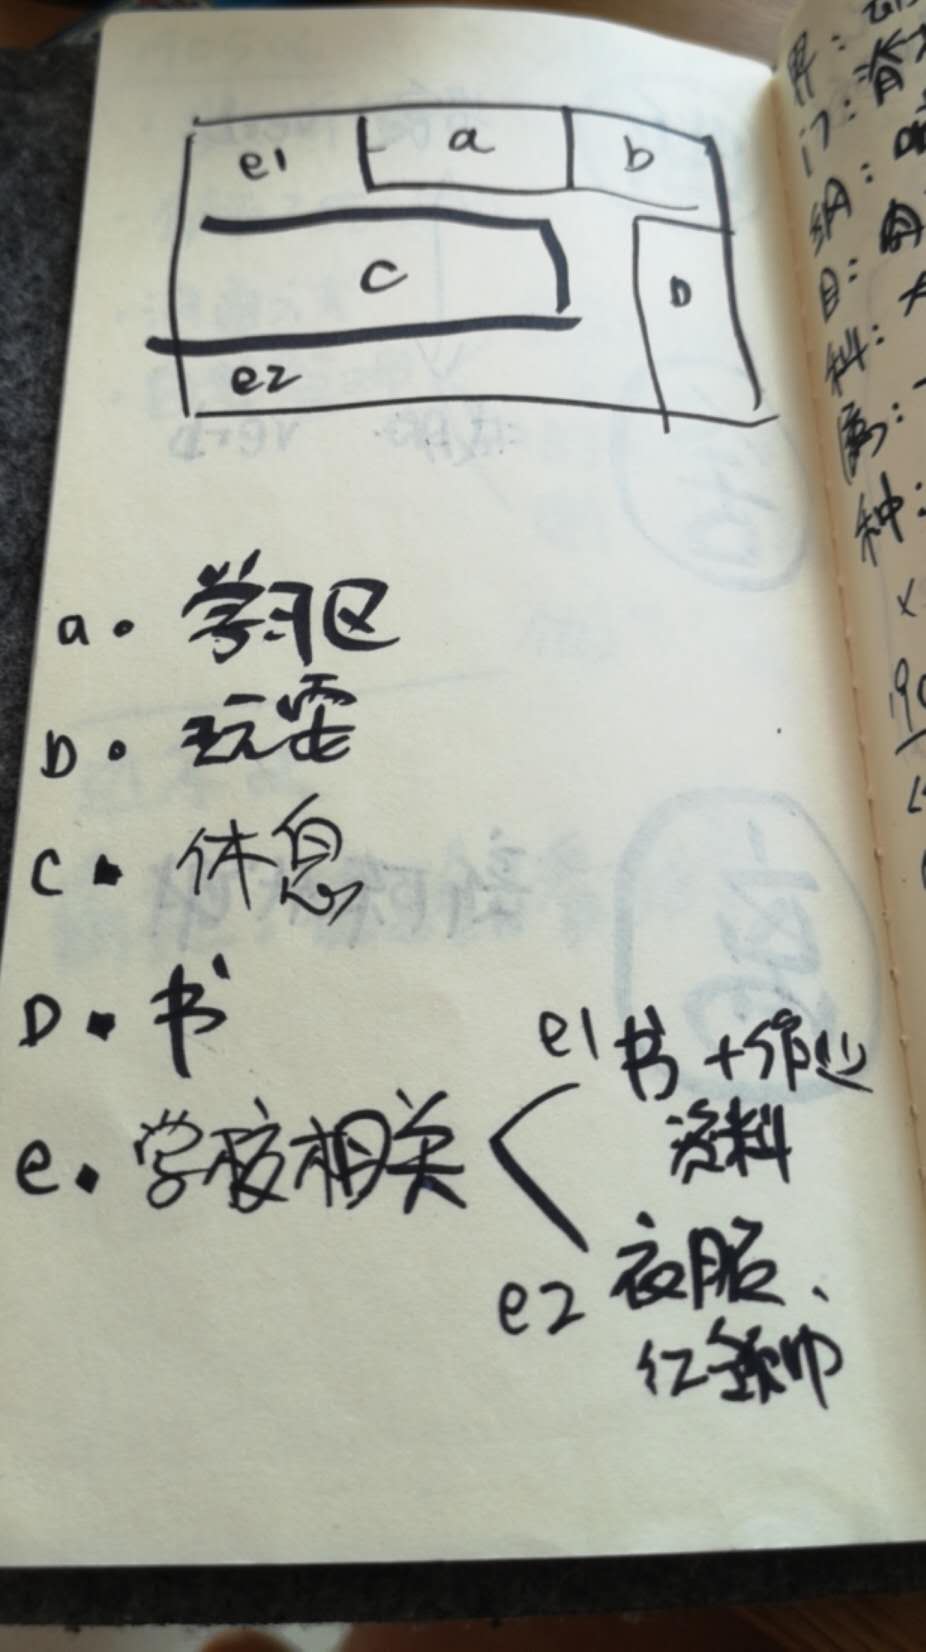 e1 a b
C D
e2
a. 学习区
b. 玩耍
c. 休息
D. 书
e. 学校相关
e1 书 + 作业
资料
e2 衣服、
红领巾
界:
门: 脊
纲: 哺
目: 肉
科:
属:
种: